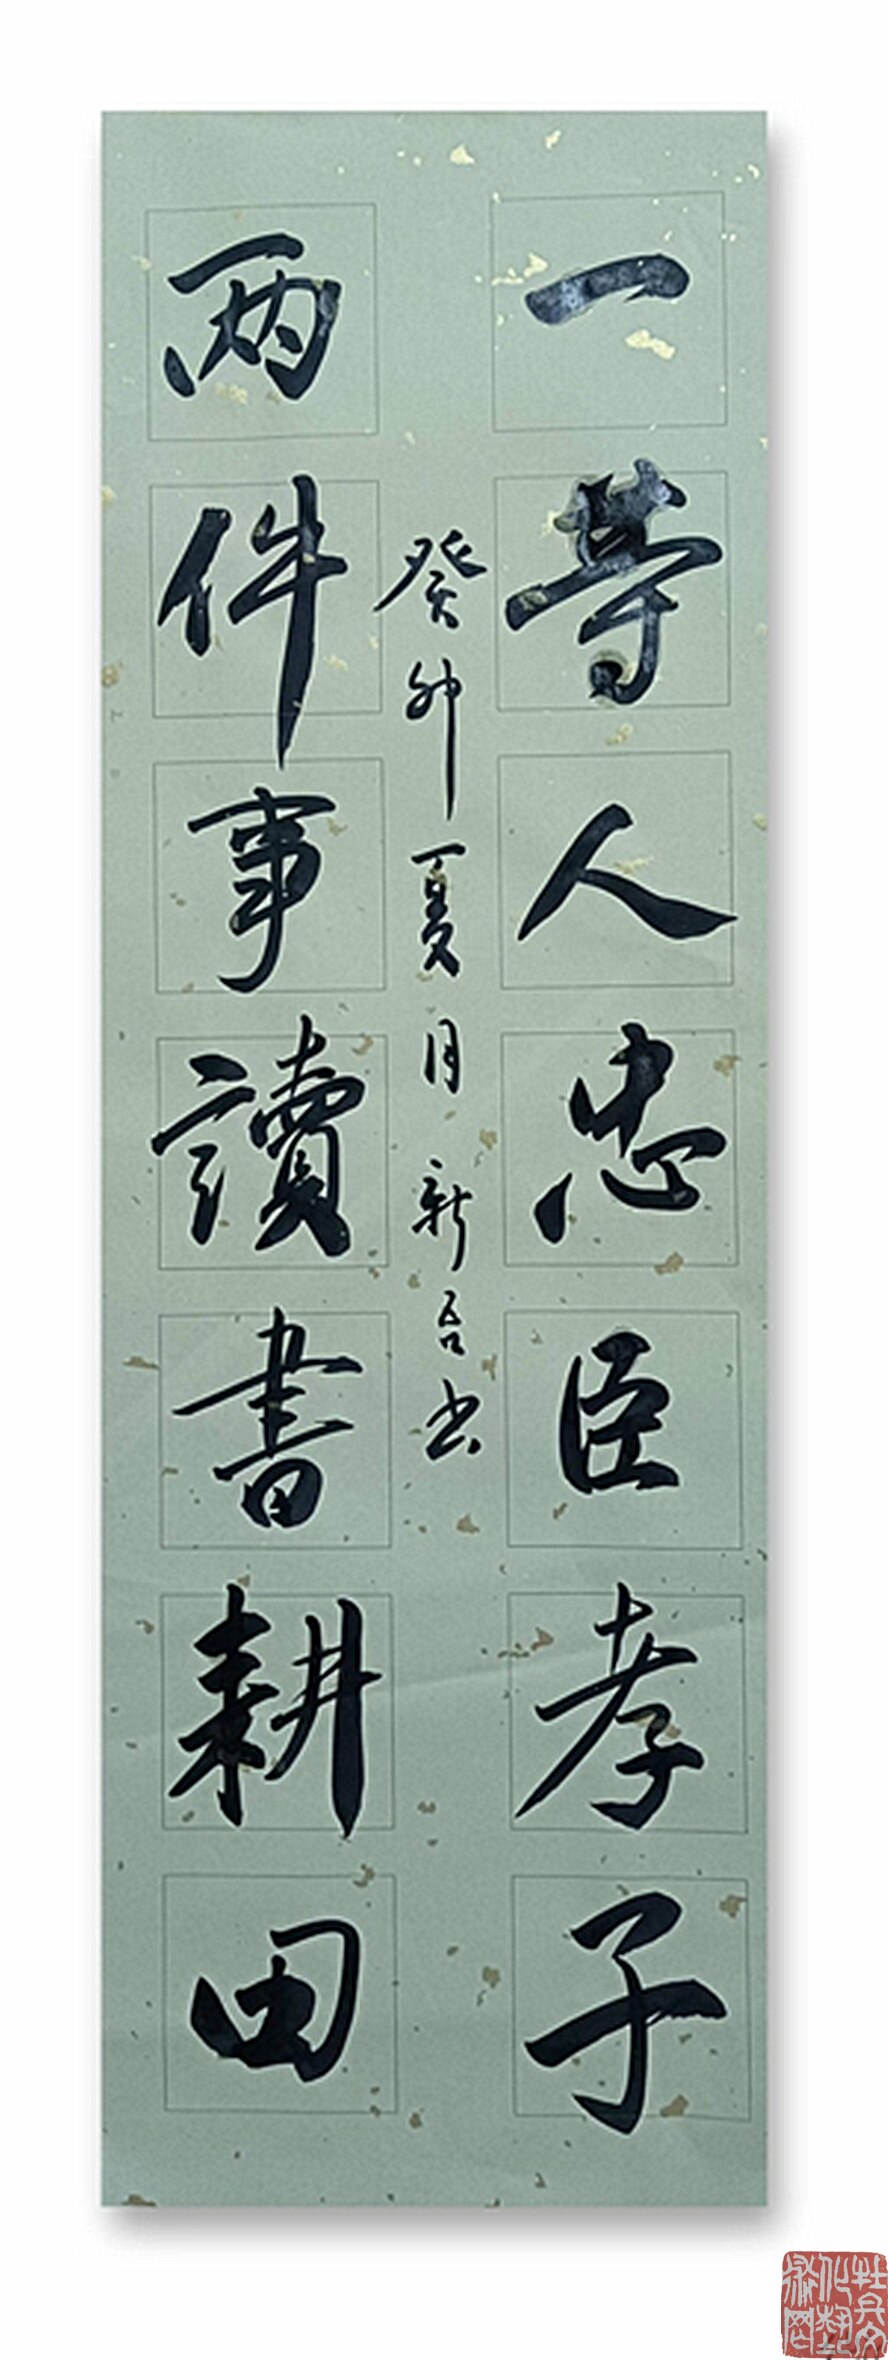 一等人忠臣孝子
癸卯夏月新吾书
兩件事讀書耕田